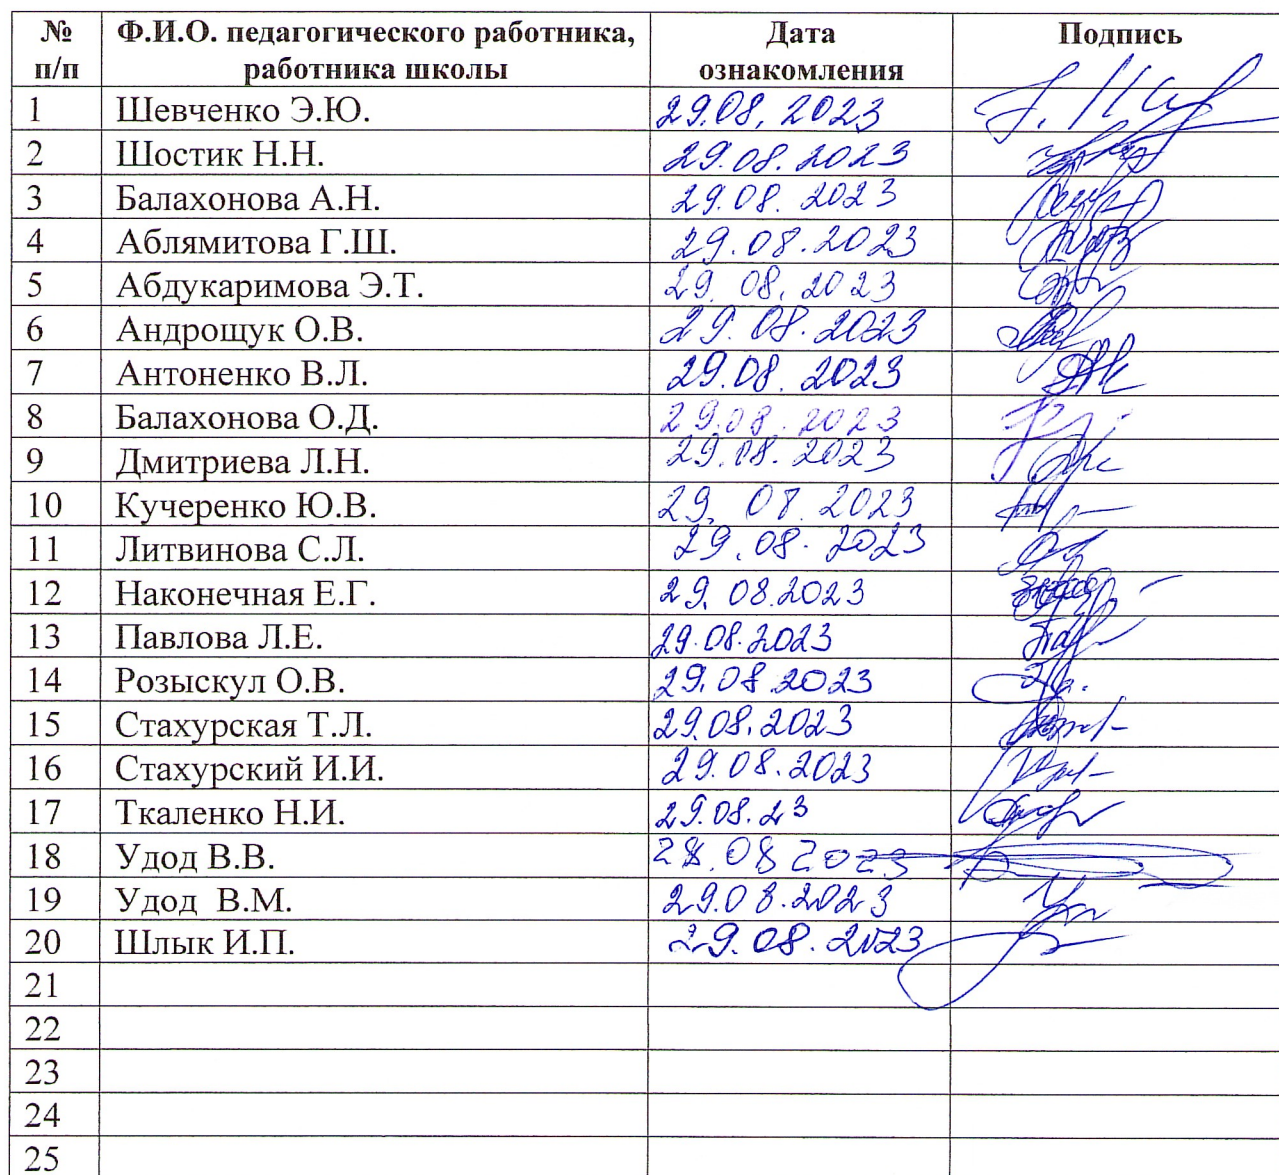 № п/п Ф.И.О. педагогического работника, работника школы Дата ознакомления Подпись
1 Шевченко Э.Ю. 29.08.2023
2 Шостик Н.Н. 29.08.2023
3 Балахонова А.Н. 29.08.2023
4 Аблямитова Г.Ш. 29.08.2023
5 Абдукаримова Э.Т. 29.08.2023
6 Андрощук О.В. 29.08.2023
7 Антоненко В.Л. 29.08.2023
8 Балахонова О.Д. 29.08.2023
9 Дмитриева Л.Н. 29.08.2023
10 Кучеренко Ю.В. 29.08.2023
11 Литвинова С.Л. 29.08.2023
12 Наконечная Е.Г. 29.08.2023
13 Павлова Л.Е. 29.08.2023
14 Розыскул О.В. 29.08.2023
15 Стахурская Т.Л. 29.08.2023
16 Стахурский И.И. 29.08.2023
17 Ткаленко Н.И. 29.08.23
18 Удод В.В.
19 Удод В.М. 29.08.2023
20 Шлык И.П. 29.08.2023
21
22
23
24
25